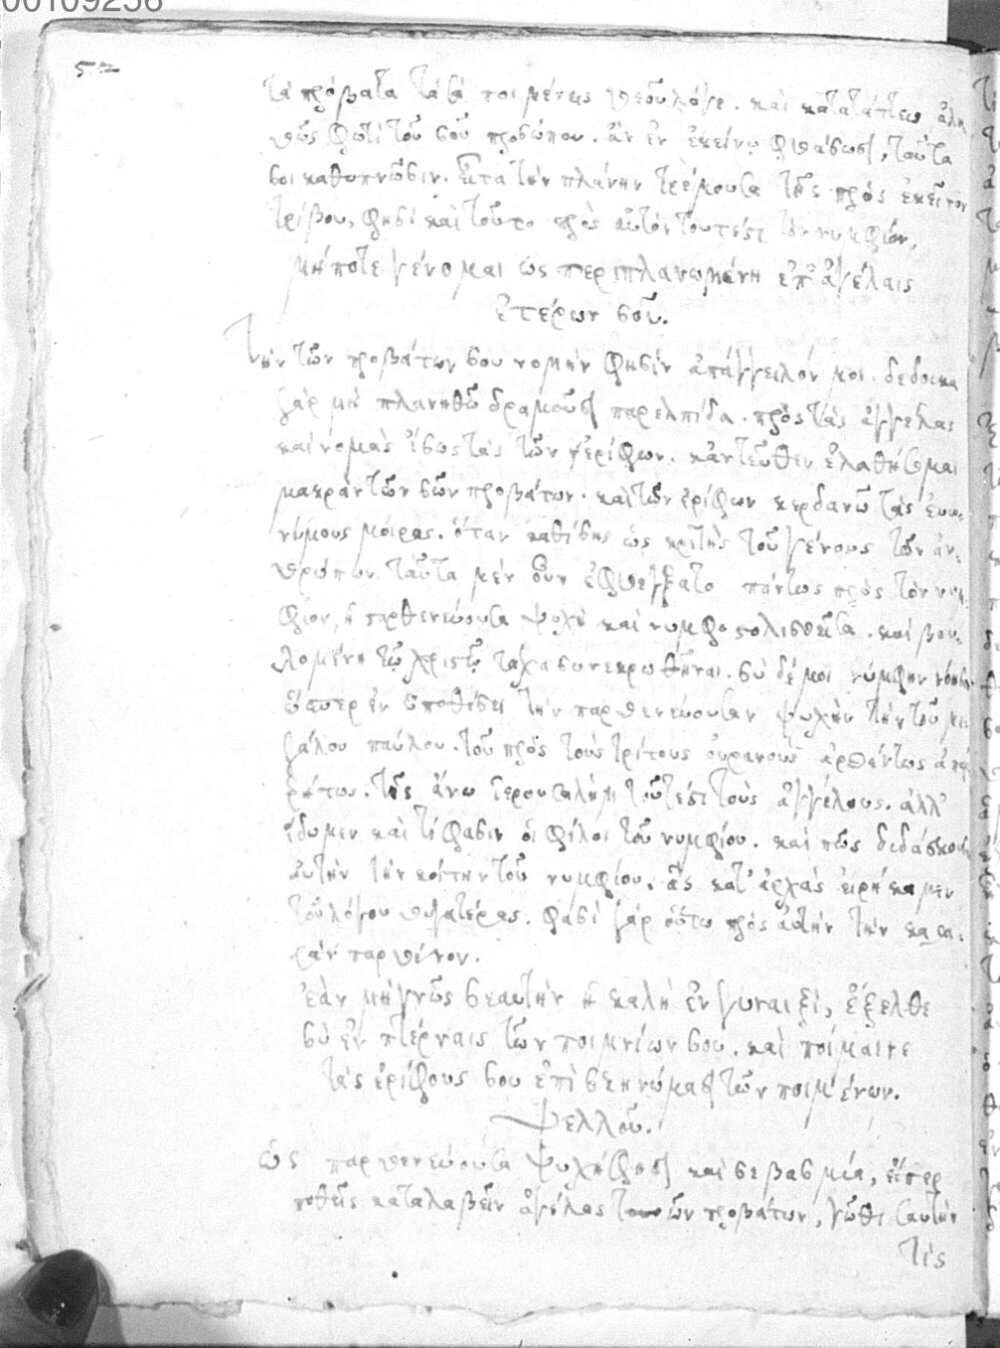 00109256
52
τὰ πρόβατα τὰ σὰ ποιμένεις θεοῦ λόγε. καὶ καταλάμπεις ἀλη
θῶς φωτὶ τοῦ σοῦ προσώπου. ἂν ἐν ἐκείνῳ φθάσωσι, τοῦτα
σοι καθυπνῶσιν. εἶτα τὴν πλάνην τρέμουσα τῆς πρὸς ἐκεῖνον
τρίβου, φησὶ καὶ τοῦτο πρὸς αὐτὸν τουτέστι τὸν νυμφίον,
μήποτε γένομαι ὡς περιπλανωμένη ἐπ' ἀγέλαις
ἑτέρων σου.
Τὴν τῶν προβάτων σου νομὴν φησὶν ἀπάγγειλόν μοι. δέδοικα
γὰρ μὴ πλανηθῶ δραμοῦσα παρελπίδα. πρὸς τὰς ἀγγέλας
καὶ νομὰς ἴσως τὰς τῶν ἐρίφων. κἀντεῦθεν ἐλαθήσομαι
μακρὰν τῶν σῶν προβάτων. καὶ τῶν ἐρίφων κερδανῶ τὰς εὐω
νύμους μοίρας. ὅταν καθίσης ὡς κριτὴς τοῦ γένους τῶν ἀν
θρώπων. ταῦτα μὲν οὖν ἐφθέγξατο πάντως πρὸς τὸν νυμ
φίον, ἡ παρθενεύουσα ψυχὴ καὶ νυμφοστολισθεῖσα. καὶ βου
λομένη τῷ χριστῷ τάχα συνεκρωθῆναι. σὺ δέ μοι νύμφην νόησον
ὥσπερ ἐν ὑποθέσει τὴν παρθενεύουσαν ψυχὴν τὴν τοῦ με
γάλου παύλου. τοῦ πρὸς τοὺς τρίτους οὐρανοὺς ἀρθέντως ἀπορ
ρήτως. τῆς ἄνω ἱερουσαλὴμ τουτέστι τοὺς ἀγγέλους. ἀλλ'
ἴδωμεν καὶ τί φασιν οἱ φίλοι τοῦ νυμφίου. καὶ πῶς διδάσκουσιν
αὐτὴν τὴν κοίτην τοῦ νυμφίου. ἃς κατ' ἀρχὰς εἰρήκαμεν
τοῦ λόγου θυγατέρας. φασὶ γὰρ οὕτω πρὸς αὐτὴν τὴν καθα
ρὰν παρθένον.
ἐὰν μὴ γνῶς σεαυτὴν ἡ καλὴ ἐν γυναιξὶ, ἔξελθε
σὺ ἐν πτέρναις τῶν ποιμνίων σου. καὶ ποίμαινε
τὰς ἐρίφους σου ἐπὶ σκηνώμασι τῶν ποιμένων.
Ψελλοῦ.
ὡς παρθενεύουσα ψυχή φησι καὶ σεβασμία, εἴπερ
ποθεῖς καταλαβεῖν ἀγέλας τῶν προβάτων, γνῶθι σαυτὴν
τίς